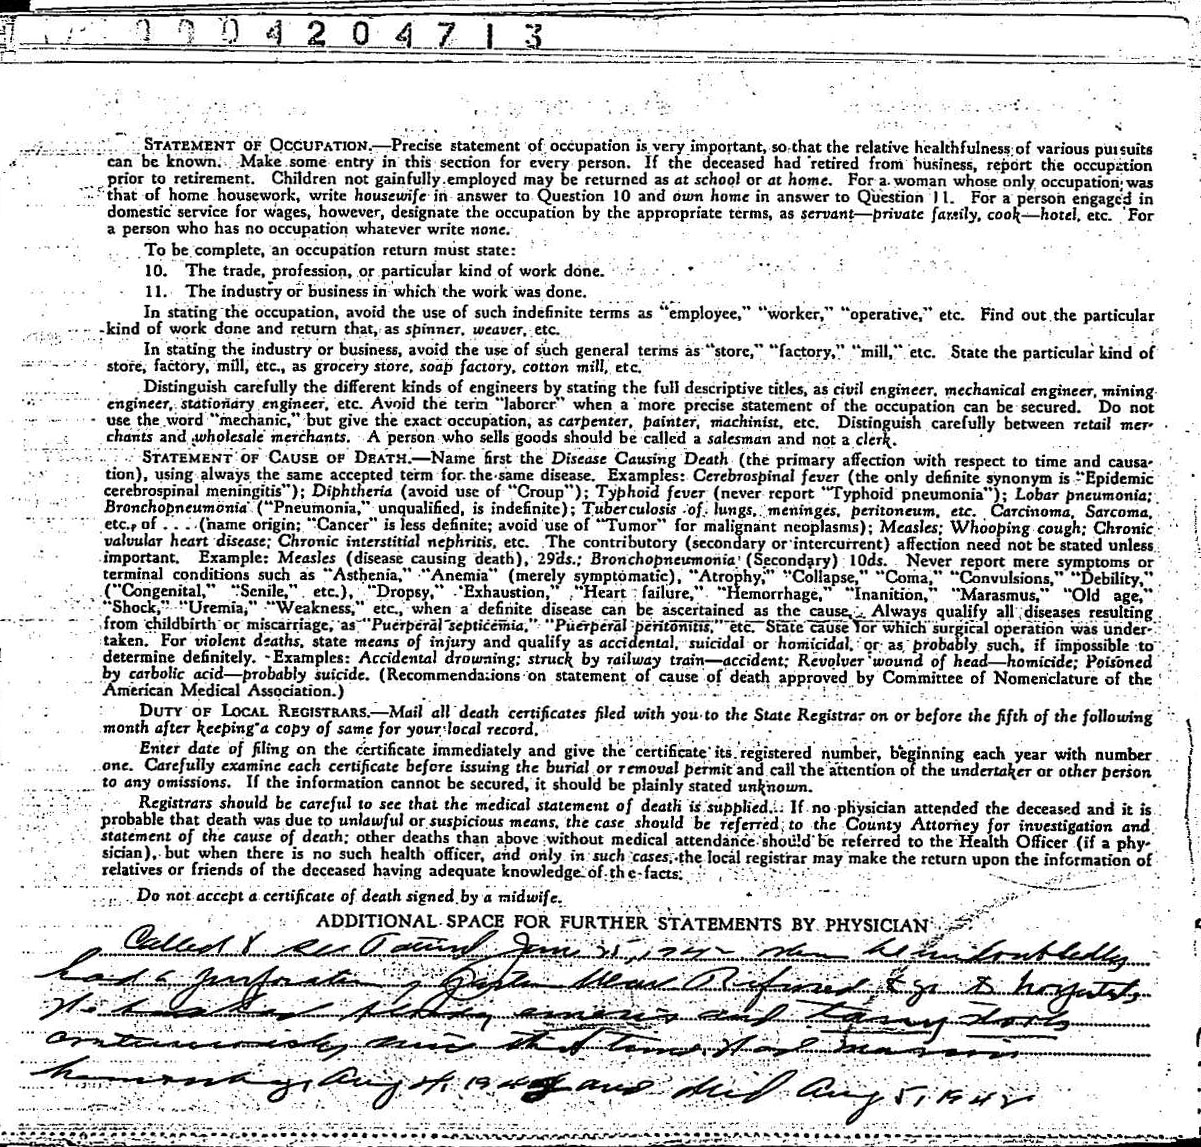 0004204713
STATEMENT OF OCCUPATION.—Precise statement of occupation is very important, so that the relative healthfulness of various pursuits
can be known. Make some entry in this section for every person. If the deceased had retired from business, report the occupation
prior to retirement. Children not gainfully employed may be returned as at school or at home. For a woman whose only occupation was
that of home housework, write housewife in answer to Question 10 and own home in answer to Question 11. For a person engaged in
domestic service for wages, however, designate the occupation by the appropriate terms, as servant—private family, cook—hotel, etc. For
a person who has no occupation whatever write none.
To be complete, an occupation return must state:
10. The trade, profession, or particular kind of work done.
11. The industry or business in which the work was done.
In stating the occupation, avoid the use of such indefinite terms as "employee," "worker," "operative," etc. Find out the particular
kind of work done and return that, as spinner, weaver, etc.
In stating the industry or business, avoid the use of such general terms as "store," "factory," "mill," etc. State the particular kind of
store, factory, mill, etc., as grocery store, soap factory, cotton mill, etc.
Distinguish carefully the different kinds of engineers by stating the full descriptive titles, as civil engineer, mechanical engineer, mining
engineer, stationary engineer, etc. Avoid the term "laborer" when a more precise statement of the occupation can be secured. Do not
use the word "mechanic," but give the exact occupation, as carpenter, painter, machinist, etc. Distinguish carefully between retail mer-
chants and wholesale merchants. A person who sells goods should be called a salesman and not a clerk.
STATEMENT OF CAUSE OF DEATH.—Name first the Disease Causing Death (the primary affection with respect to time and causa-
tion), using always the same accepted term for the same disease. Examples: Cerebrospinal fever (the only definite synonym is "Epidemic
cerebrospinal meningitis"); Diphtheria (avoid use of "Croup"); Typhoid fever (never report "Typhoid pneumonia"); Lobar pneumonia;
Bronchopneumonia ("Pneumonia," unqualified, is indefinite); Tuberculosis of lungs, meninges, peritoneum, etc. Carcinoma, Sarcoma,
etc., of . . . (name origin; "Cancer" is less definite; avoid use of "Tumor" for malignant neoplasms); Measles; Whooping cough; Chronic
valvular heart disease; Chronic interstitial nephritis, etc. The contributory (secondary or intercurrent) affection need not be stated unless
important. Example: Measles (disease causing death), 29ds.; Bronchopneumonia (Secondary) 10ds. Never report mere symptoms or
terminal conditions such as "Asthenia," "Anemia" (merely symptomatic), "Atrophy," "Collapse," "Coma," "Convulsions," "Debility,"
("Congenital," "Senile," etc.), "Dropsy," "Exhaustion," "Heart failure," "Hemorrhage," "Inanition," "Marasmus," "Old age,"
"Shock," "Uremia," "Weakness," etc., when a definite disease can be ascertained as the cause. Always qualify all diseases resulting
from childbirth or miscarriage, as "Puerperal septicemia," "Puerperal peritonitis," etc. State cause for which surgical operation was under-
taken. For violent deaths, state means of injury and qualify as accidental, suicidal or homicidal, or as probably such, if impossible to
determine definitely. Examples: Accidental drowning; struck by railway train—accident; Revolver wound of head—homicide; Poisoned
by carbolic acid—probably suicide. (Recommendations on statement of cause of death approved by Committee of Nomenclature of the
American Medical Association.)
DUTY OF LOCAL REGISTRARS.—Mail all death certificates filed with you to the State Registrar on or before the fifth of the following
month after keeping a copy of same for your local record.
Enter date of filing on the certificate immediately and give the certificate its registered number, beginning each year with number
one. Carefully examine each certificate before issuing the burial or removal permit and call the attention of the undertaker or other person
to any omissions. If the information cannot be secured, it should be plainly stated unknown.
Registrars should be careful to see that the medical statement of death is supplied. If no physician attended the deceased and it is
probable that death was due to unlawful or suspicious means, the case should be referred to the County Attorney for investigation and
statement of the cause of death; other deaths than above without medical attendance should be referred to the Health Officer (if a phy-
sician), but when there is no such health officer, and only in such cases, the local registrar may make the return upon the information of
relatives or friends of the deceased having adequate knowledge of the facts.
Do not accept a certificate of death signed by a midwife.
ADDITIONAL SPACE FOR FURTHER STATEMENTS BY PHYSICIAN
Called to see Patient 25, 1942 when he undoubtedly
had a perforation of Ulcer Refused to go to hospital
He has had and tarry stools
continuously since that time. Had massive
hemorrhage Aug 4, 1942 and died Aug 5, 1942